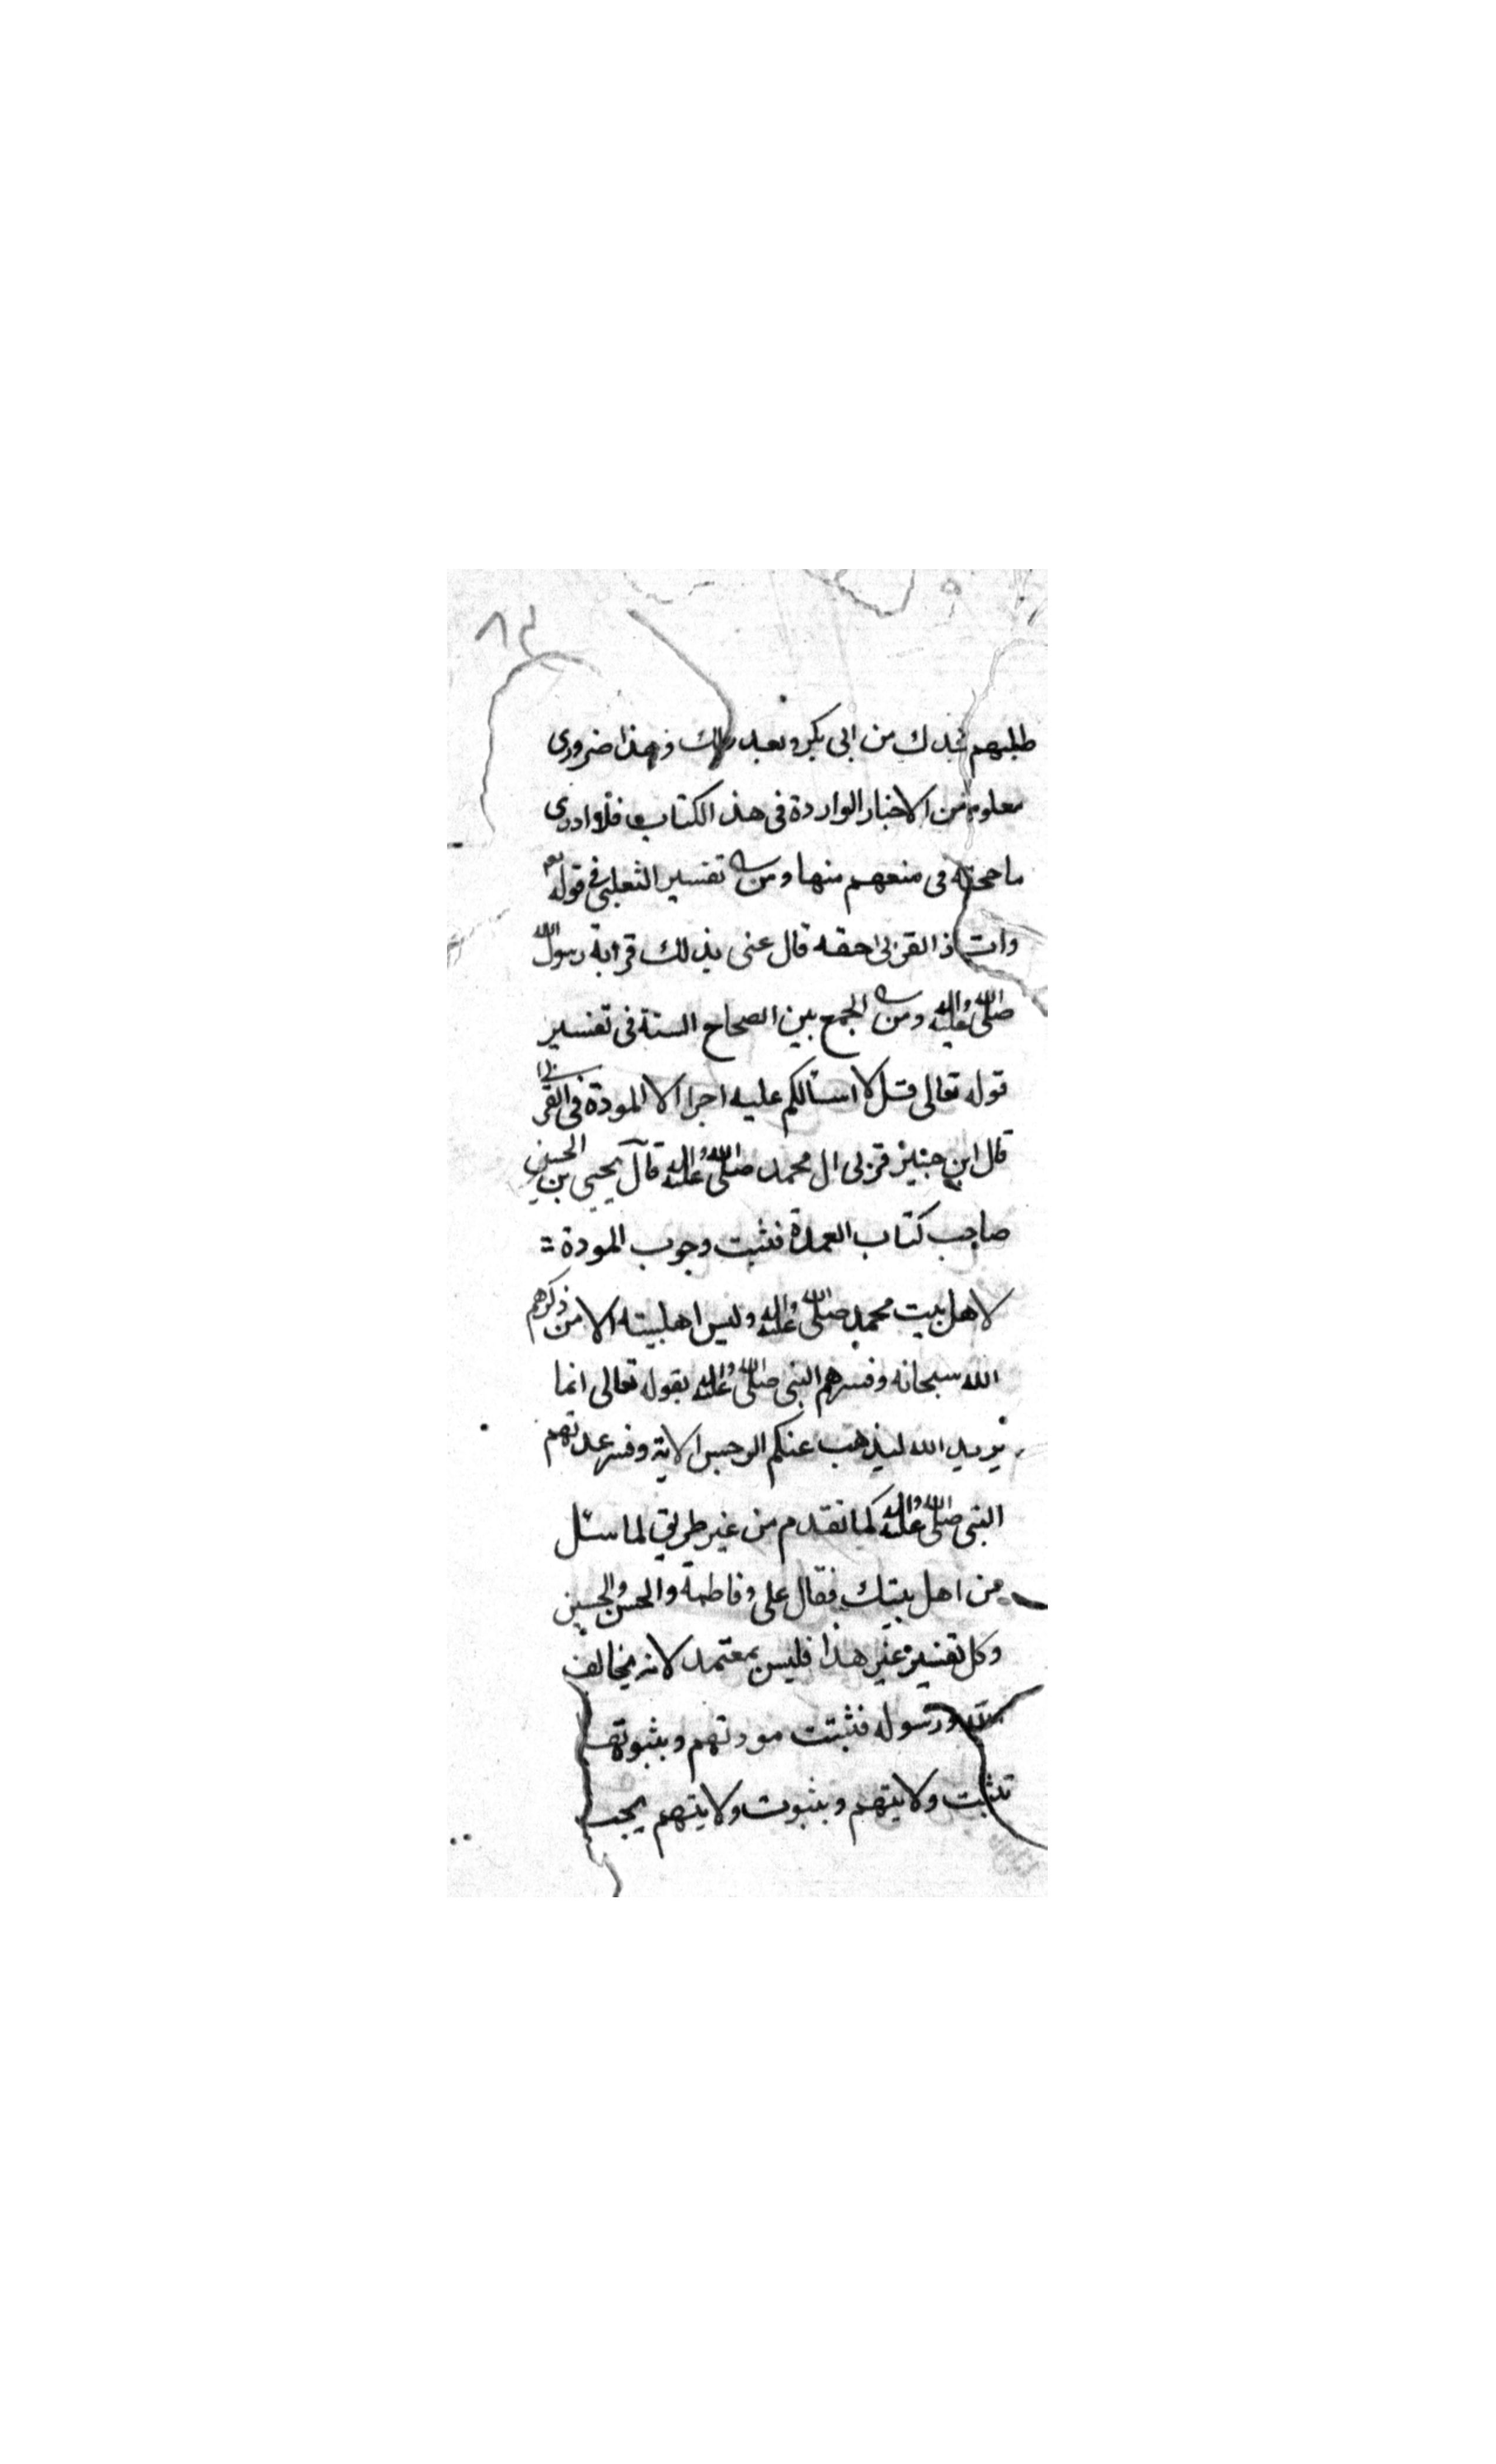 ٨٣
طلبهم فدك من ابى بكر وبعد ذلك فهذا ضرورى
معلوم من الاخبار الواردة فى هذ الكتاب فلا ادرى
ما حجته فى منعهم منها ومن تفسير الثعلبى فى قوله تعم
وات ذا القربى حقه قال عنى بذلك قرابة رسول الله
صلى الله عليه واله ومن الجمع بين الصحاح الستة فى تفسير
قوله تعالى قل لا اسألكم عليه اجرا الا المودة فى القربى
قال ابن جبير قربى ال محمد صلى الله عليه واله قال يحيى بن الحسن
صاحب كتاب العمدة فثبت وجوب المودة
لاهل بيت محمد صلى الله عليه واله وليس اهلبيته الا من ذكرهم
الله سبحانه وفسرهم النبى صلى الله عليه واله بقوله تعالى انما
يريد الله ليذهب عنكم الرجس الاية وفسر عدتهم
النبى صلى الله عليه واله كما تقدم من غير طريق لما سئل
من اهل بيتك فقال على وفاطمة والحسن والحسين
وكل تفسير غير هذا فليس بمعتمد لانه يخالف
الله ورسوله فثبتت مودتهم وبثبوتها
تثبت ولايتهم وبثبوت ولايتهم يجب